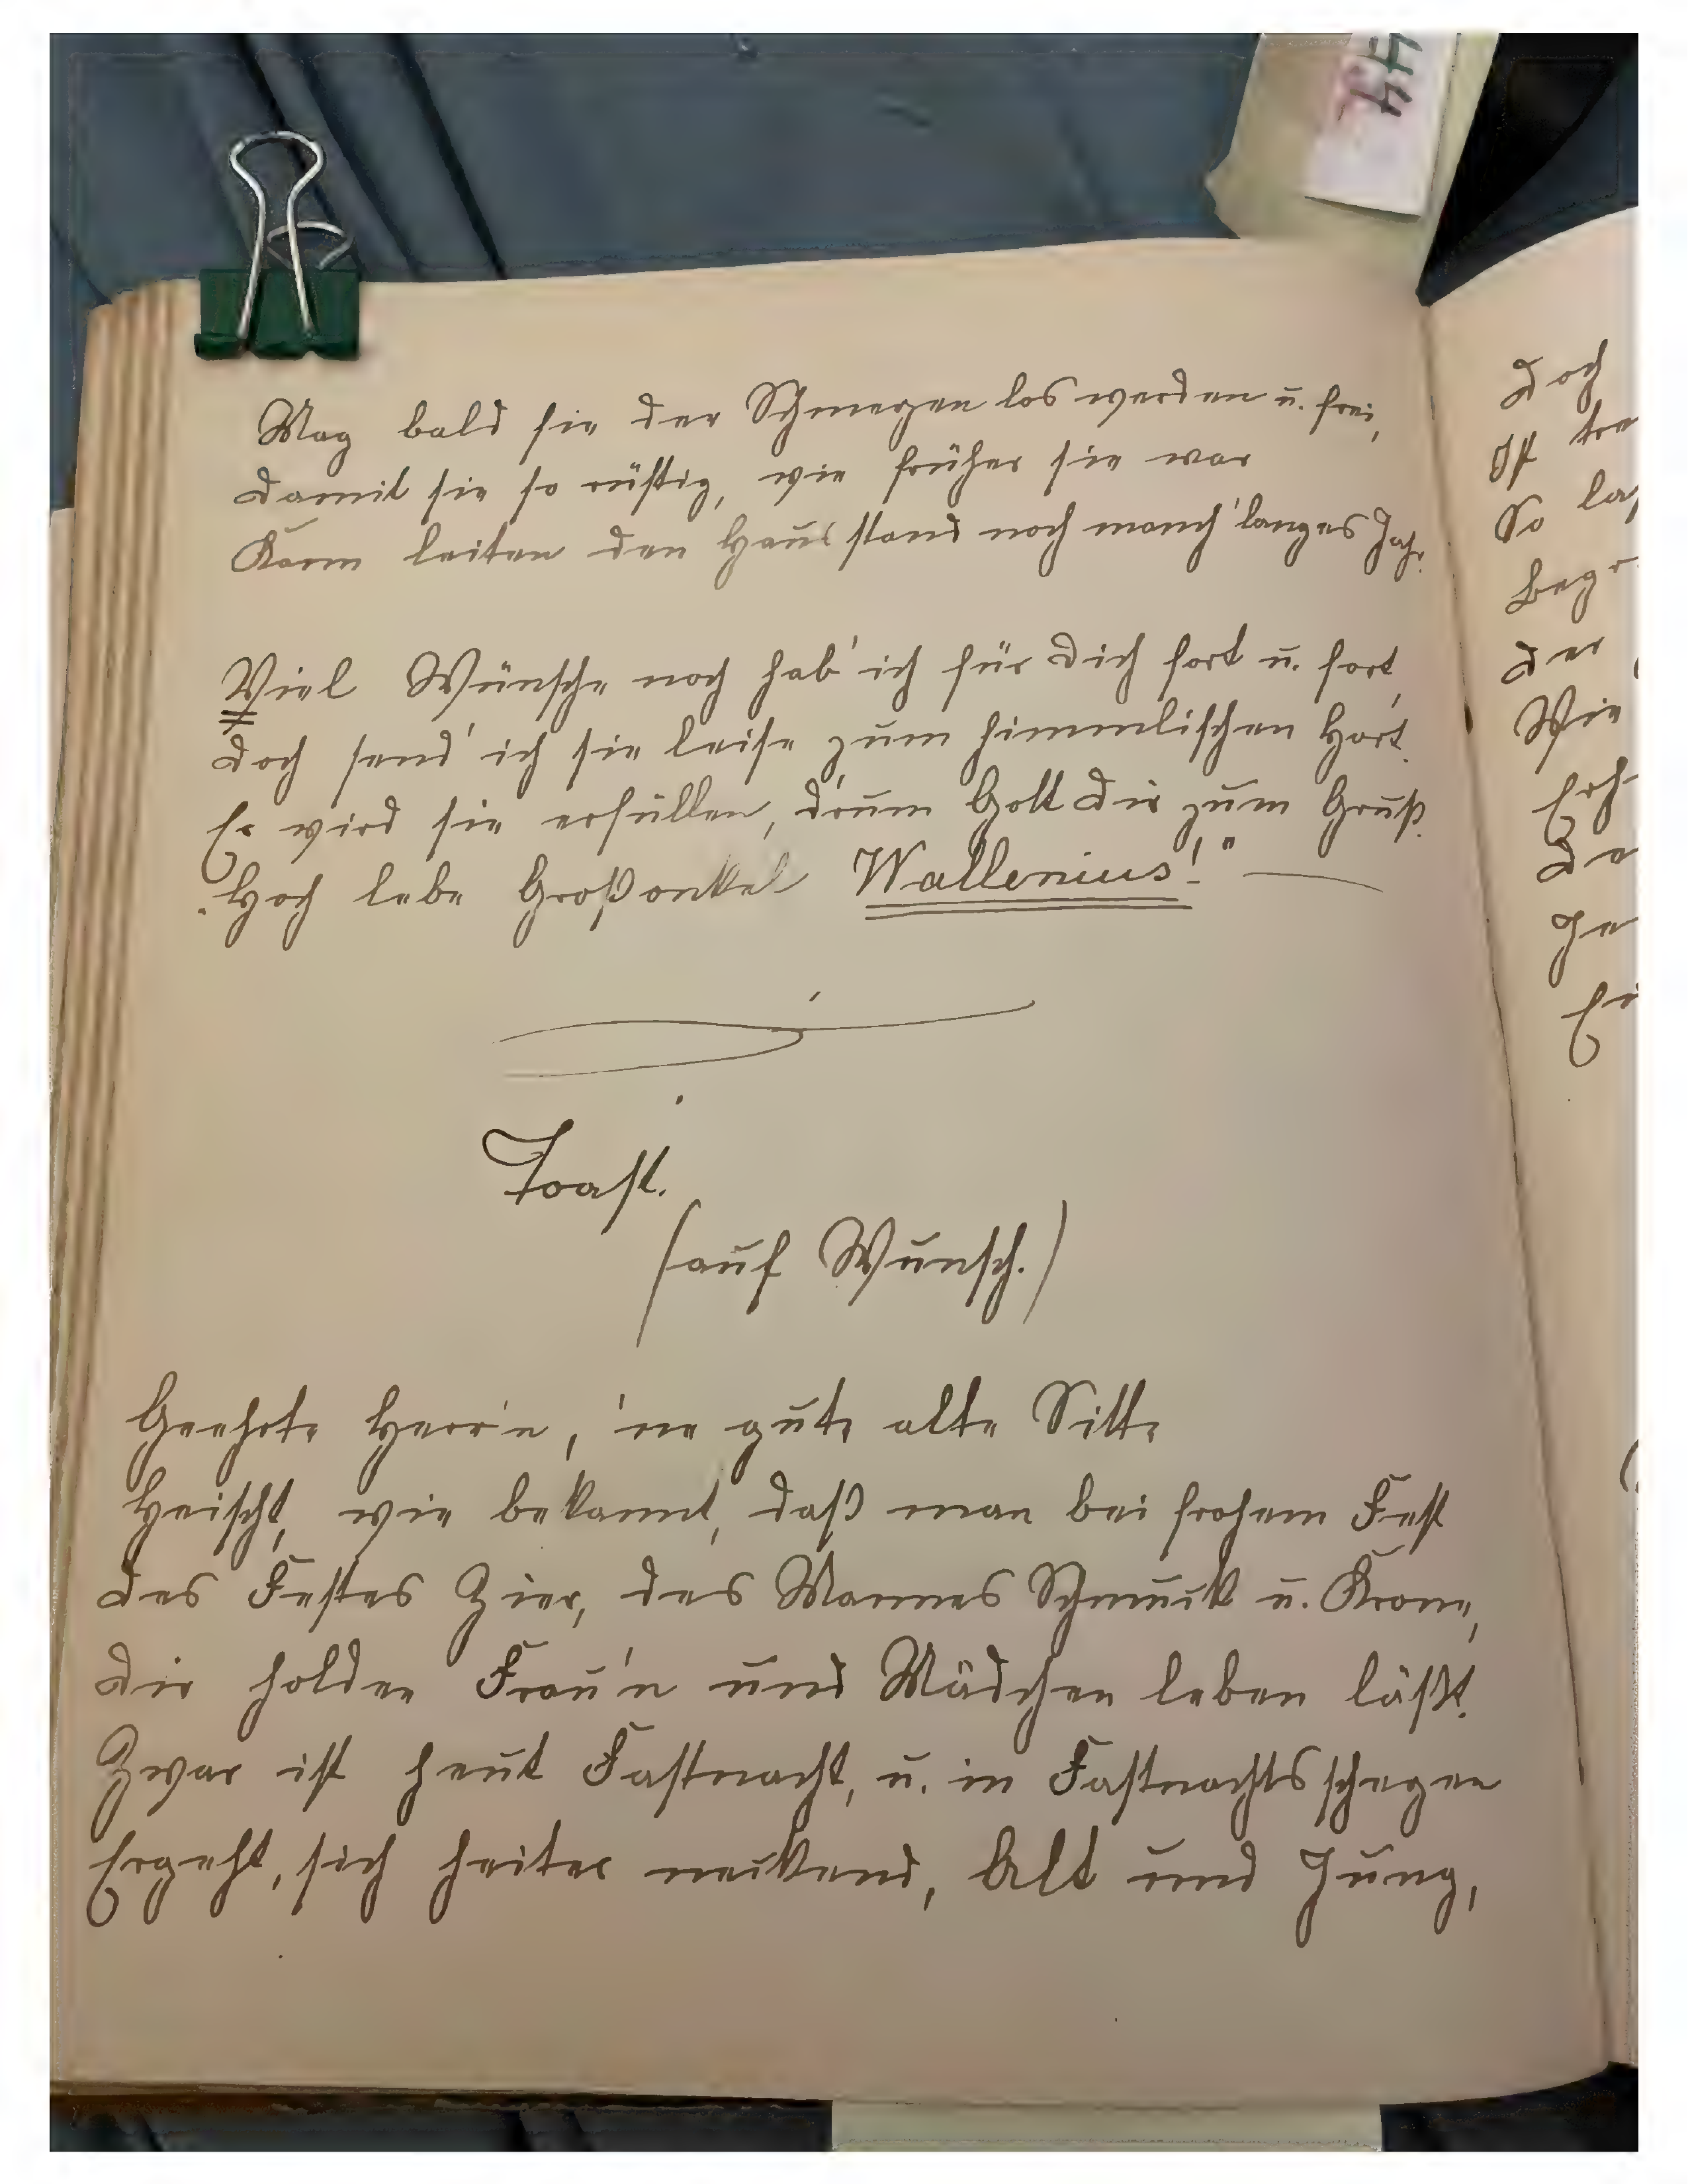 Mag bald sie der Schmerzen los werden u. frei,
Damit sie so rüstig, wie früher sie war
Kann leiten den Hausstand noch manch' langes Jahr.
Viel Wünsche noch hab' ich für Dich fort u. fort,
Doch send' ich sie leise zum himmlischen Hort.
Er wird sie erfüllen, drum Gott Dir zum Gruß.
„Hoch lebe Großonkel Wallenius!"
Toast.
(auf Wunsch.)
Geehrte Herr'n, 'ne gute alte Sitte
Heischt, wie bekannt, daß man bei frohem Fest
Des Festes Zier, des Mannes Schmuck u. Krone,
Die holden Frau'n und Mädchen leben läßt.
Zwar ist heut Fastnacht, u. in Fastnachtsscherzen
Ergeht, sich heiter neckend, Alt und Jung,
Doch
Ist
So
Der
Wie